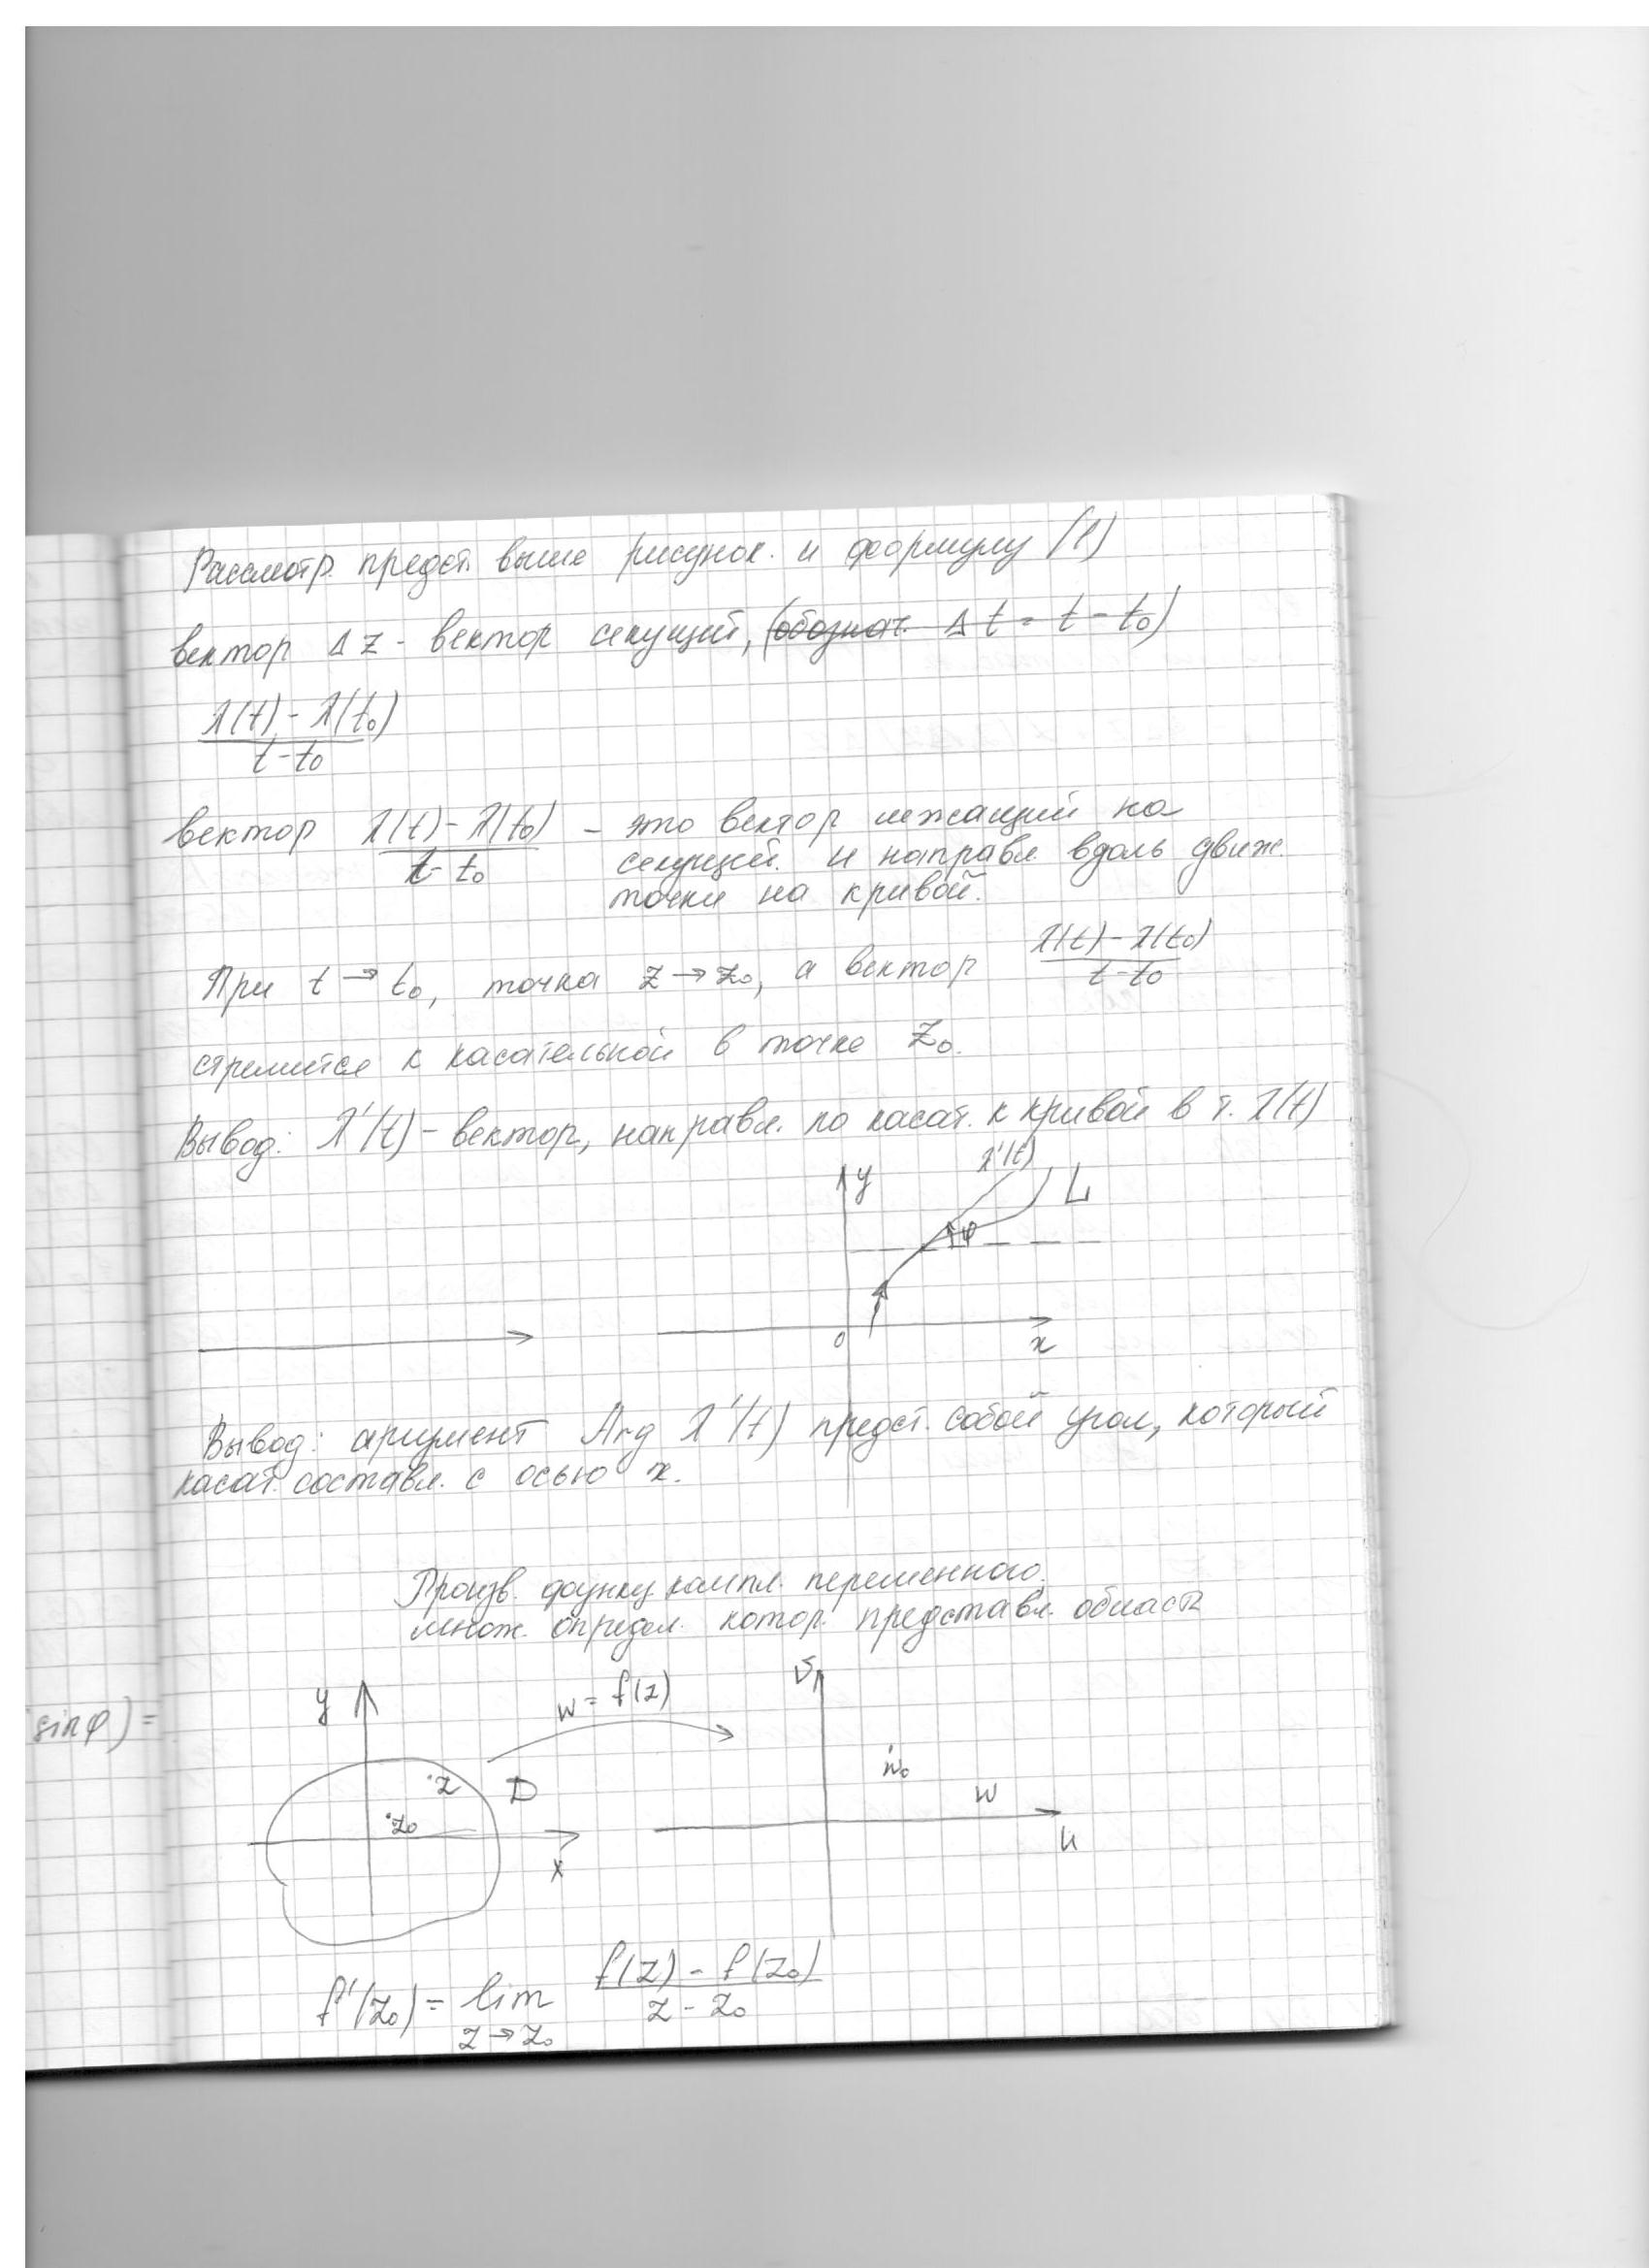 Рассмотр. предст. выше рисунок. и формулу (1)
вектор Δz - вектор секущий, (обознач. Δt = t - t₀)
λ(t) - λ(t₀)
t - t₀
вектор λ(t) - λ(t₀) - это вектор лежащий на
t - t₀ секущей. и направл. вдоль движ.
точки на кривой.
При t → t₀, точка z → z₀, а вектор λ(t) - λ(t₀)
t - t₀
стремится к касательной в точке z₀.
Вывод: λ'(t) - вектор, направл. по касат. к кривой в т. λ(t)
λ'(t)
y
L
φ
0
x
Вывод: аргумент Arg λ'(t) предст. собой угол, который
касат. составл. с осью x.
Произв. функц компл. переменного.
множ. определ. котор. представл. область
y
w = f(z)
v
z
D
w₀
z₀
w
x
u
sin φ) =
f'(z₀) = lim f(z) - f(z₀)
z → z₀ z - z₀